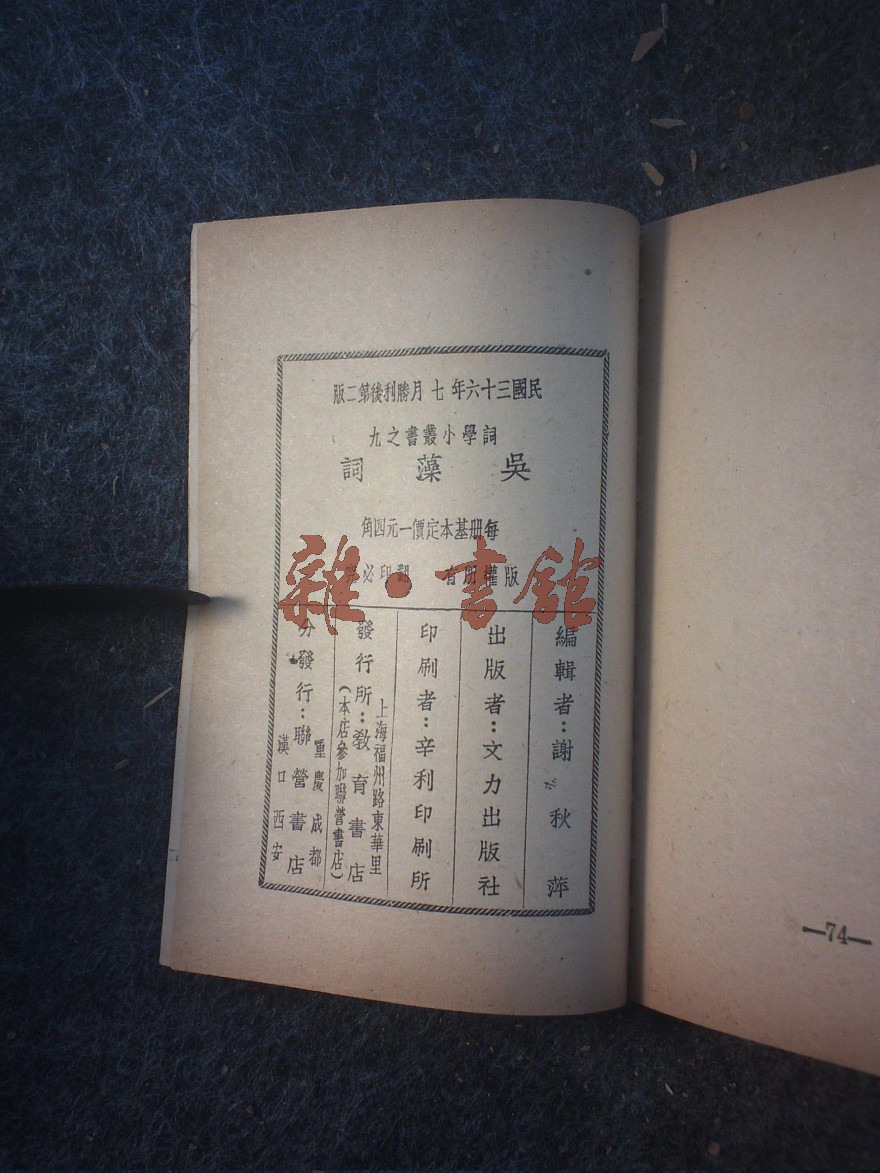 民國三十六年七月勝利後第二版
詞學小叢書之九
吳藻詞
每册基本定價一元四角
版權所有 翻印必究
編輯者：謝秋萍
出版者：文力出版社
印刷者：辛利印刷所
上海福州路東華里
發行所：教育書店
(本店參加聯營書店)
重慶成都
分發行：聯營書店
漢口西安
雜·書館
—74—